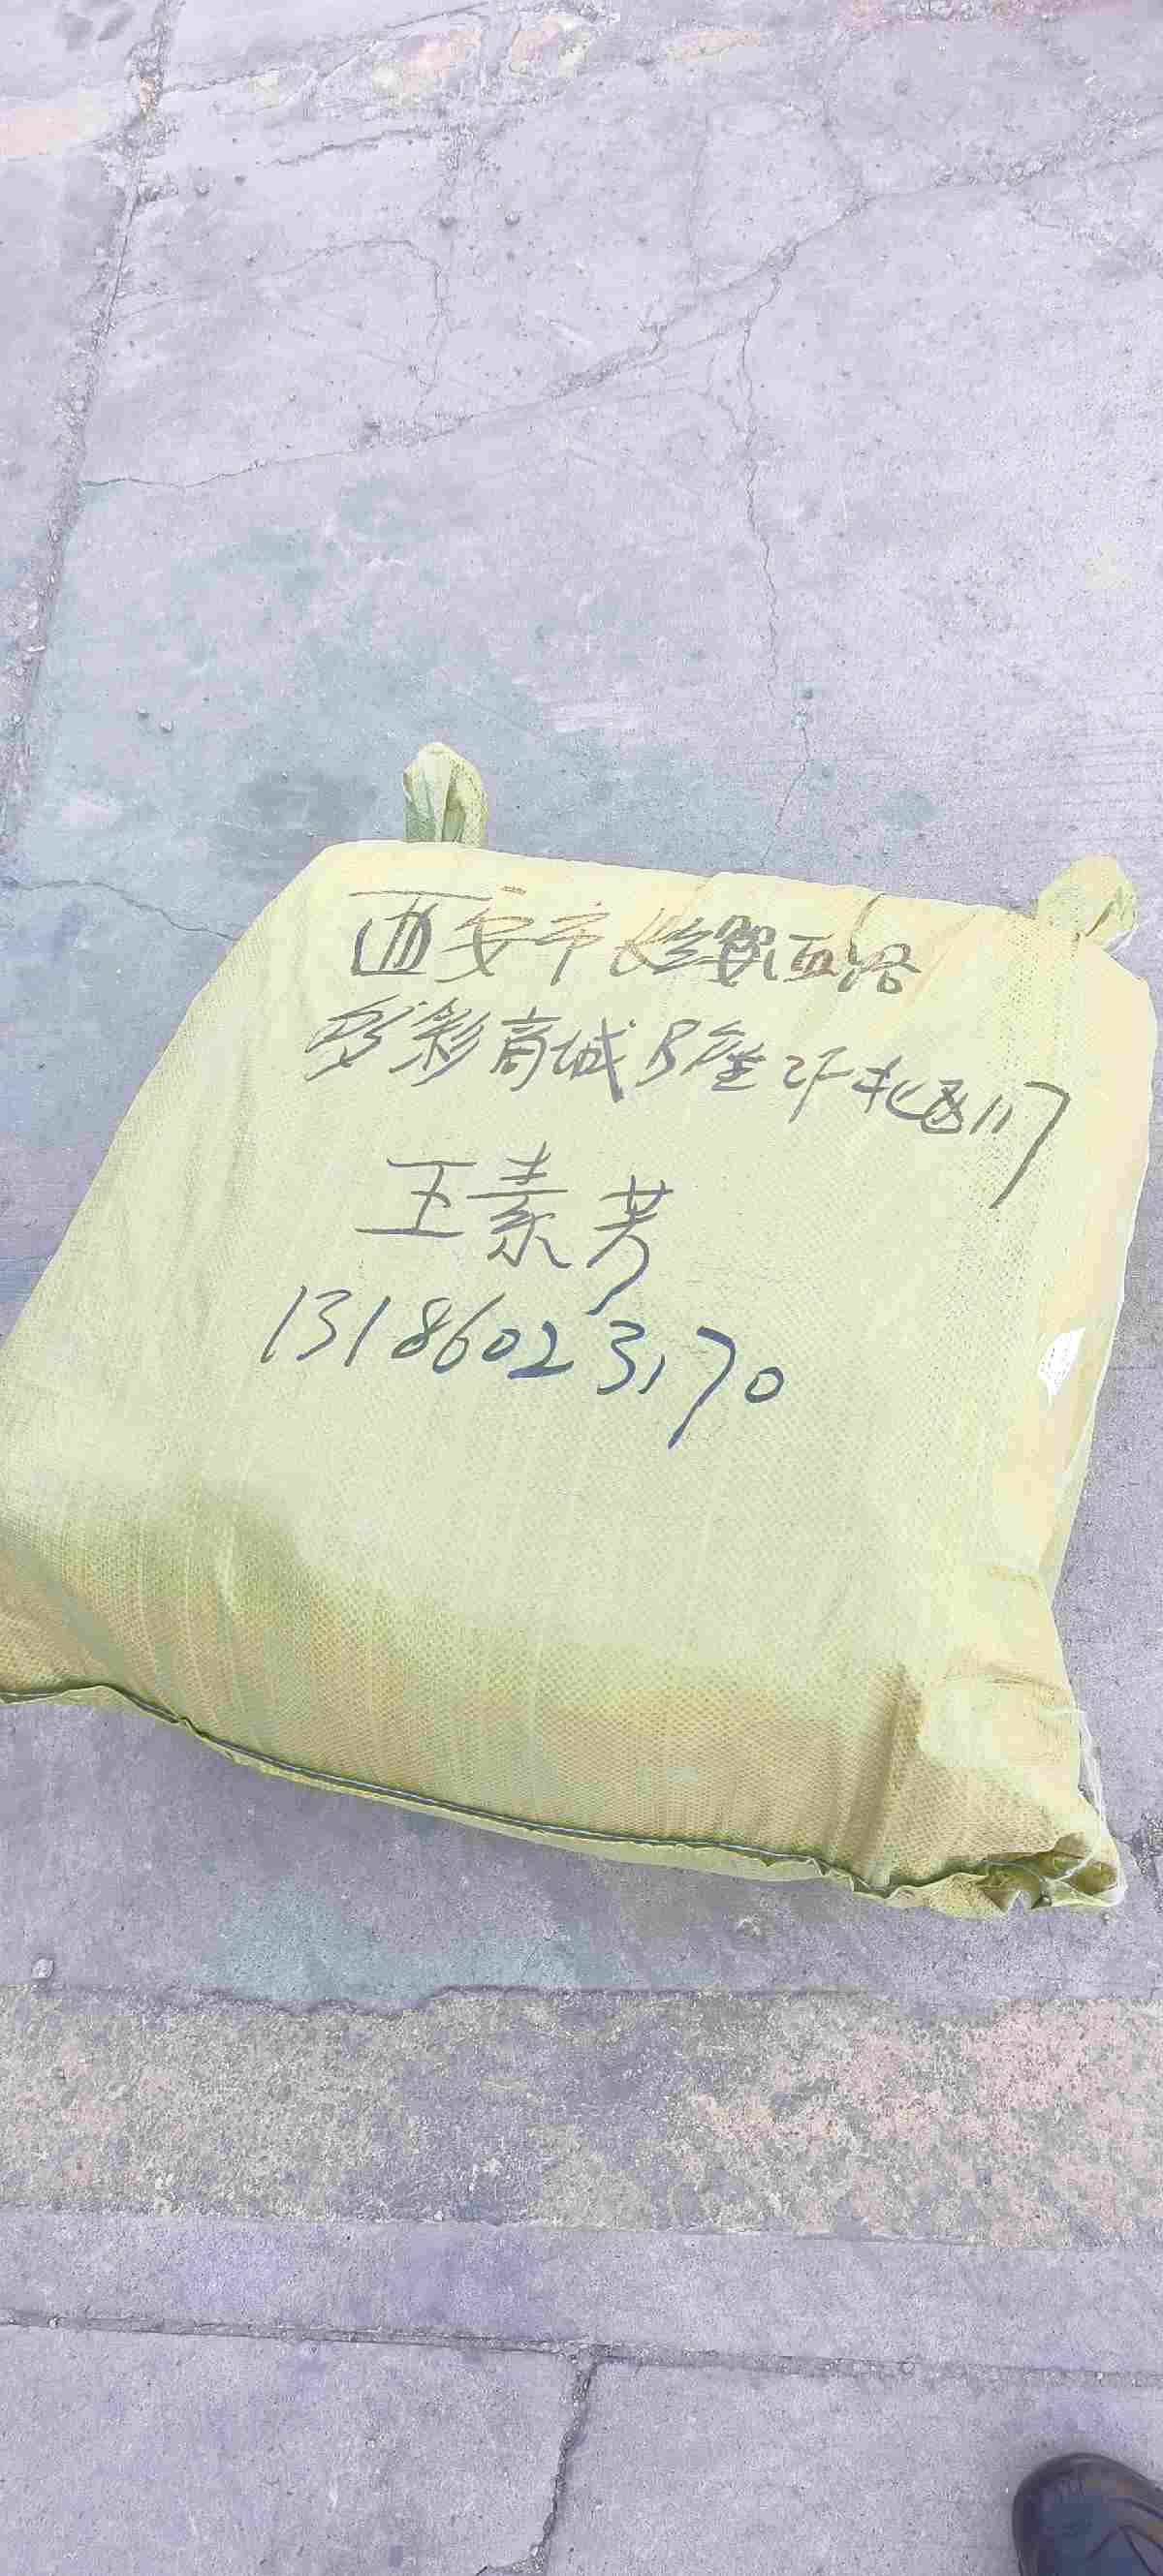 西安市长缨西路
多彩商城B座2F北区117
王素芳
13186023170